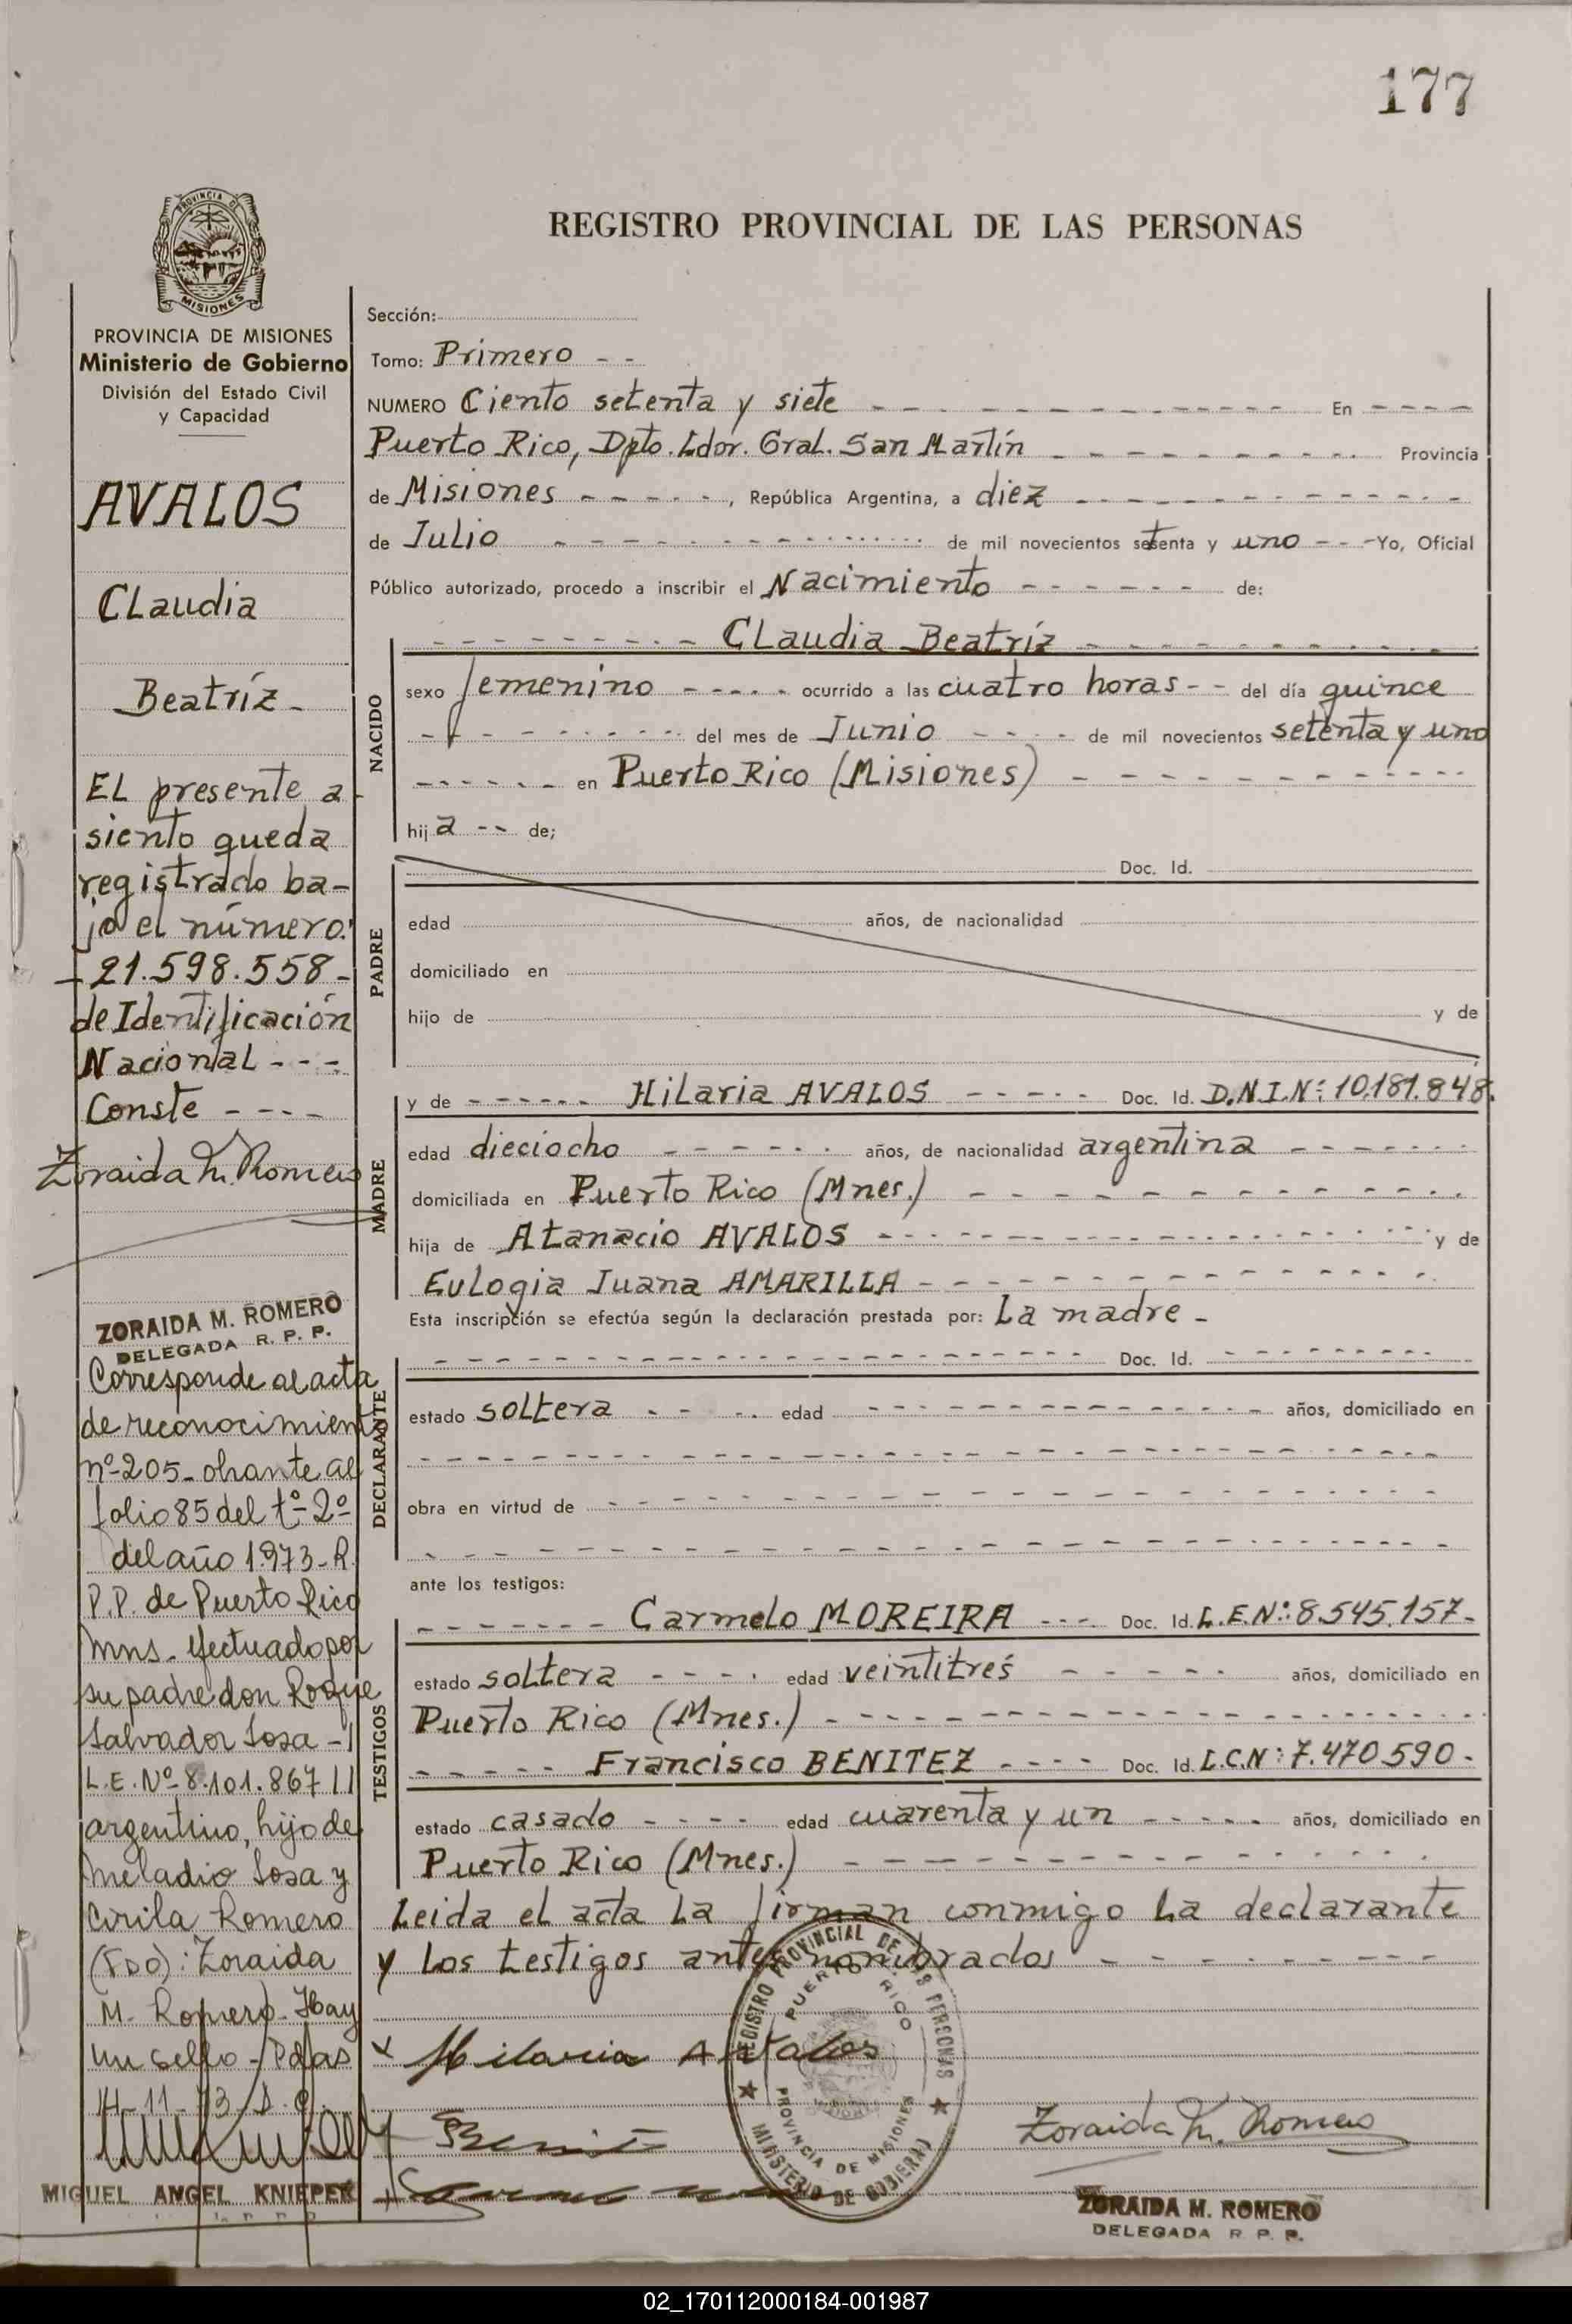 177
REGISTRO PROVINCIAL DE LAS PERSONAS
PROVINCIA DE MISIONES
MISIONES
PROVINCIA DE MISIONES
Ministerio de Gobierno
División del Estado Civil
y Capacidad
AVALOS
Claudia
Beatríz -
El presente a-
siento queda
registrado ba-
jo el número:
- 21.598.558 -
de Identificación
Nacional - - -
Conste - - - -
Zoraida M. Romero
ZORAIDA M. ROMERO
DELEGADA R. P. P.
Corresponde al acta
de reconocimiento
nº 205 - obrante al
folio 85 del tº 2º
del año 1973 - R.
P.P. de Puerto Rico
Mns. efectuado por
su padre don Roque
Salvador Sosa -
L.E. Nº 8.101.867
argentino, hijo de
Meladio Sosa y
Cirila Romero
(FDO): Zoraida
M. Romero - Hay
un sello - Pdas
14-11-73
MIGUEL ANGEL KNIEPER
Sección:
Tomo: Primero - -
NUMERO Ciento setenta y siete - - - En - - - -
Puerto Rico, Dpto. Ldor. Gral. San Martín - - - Provincia
de Misiones - - - - - -, República Argentina, a diez - - -
de Julio - - - de mil novecientos setenta y uno - - - Yo, Oficial
Público autorizado, procedo a inscribir el Nacimiento - - - - - - de:
NACIDO
- - - Claudia Beatríz - - -
sexo femenino - - - - - ocurrido a las cuatro horas - - del día quince
- - - del mes de Junio - - - - de mil novecientos setenta y uno
- - - - - - en Puerto Rico (Misiones) - - -
hij a - - de;
PADRE
Doc. Id.
edad años, de nacionalidad
domiciliado en
hijo de y de
MADRE
y de - - - - - - Hilaria AVALOS - - - - - Doc. Id. D.N.I.Nº: 10.181.848.
edad dieciocho - - - - - - años, de nacionalidad argentina - - - - - - -
domiciliada en Puerto Rico (Mnes.) - - -
hija de Atanacio AVALOS - - - y de
Eulogia Juana AMARILLA - - -
Esta inscripción se efectúa según la declaración prestada por: La madre -
DECLARANTE
- - - Doc. Id. - - -
estado soltera - - - - edad - - - años, domiciliado en
- - -
obra en virtud de - - -
- - -
ante los testigos:
TESTIGOS
- - - - - - - Carmelo MOREIRA - - - Doc. Id. L.E.Nº: 8.545.157 -
estado soltera - - - - - edad veintitrés - - - - - años, domiciliado en
Puerto Rico (Mnes.) - - -
- - - - - Francisco BENITEZ - - - - Doc. Id. L.C.Nº: 7.470.590 -
estado casado - - - - edad cuarenta y un - - - - - años, domiciliado en
Puerto Rico (Mnes.) - - -
Leida el acta la firman conmigo la declarante
y los testigos antes nombrados - - -
x Hilaria Avalos
REGISTRO PROVINCIAL DE LAS PERSONAS
PUERTO RICO
PROVINCIA DE MISIONES
MINISTERIO DE GOBIERNO
Zoraida M. Romero
ZORAIDA M. ROMERO
DELEGADA R. P. P.
02_170112000184-001987